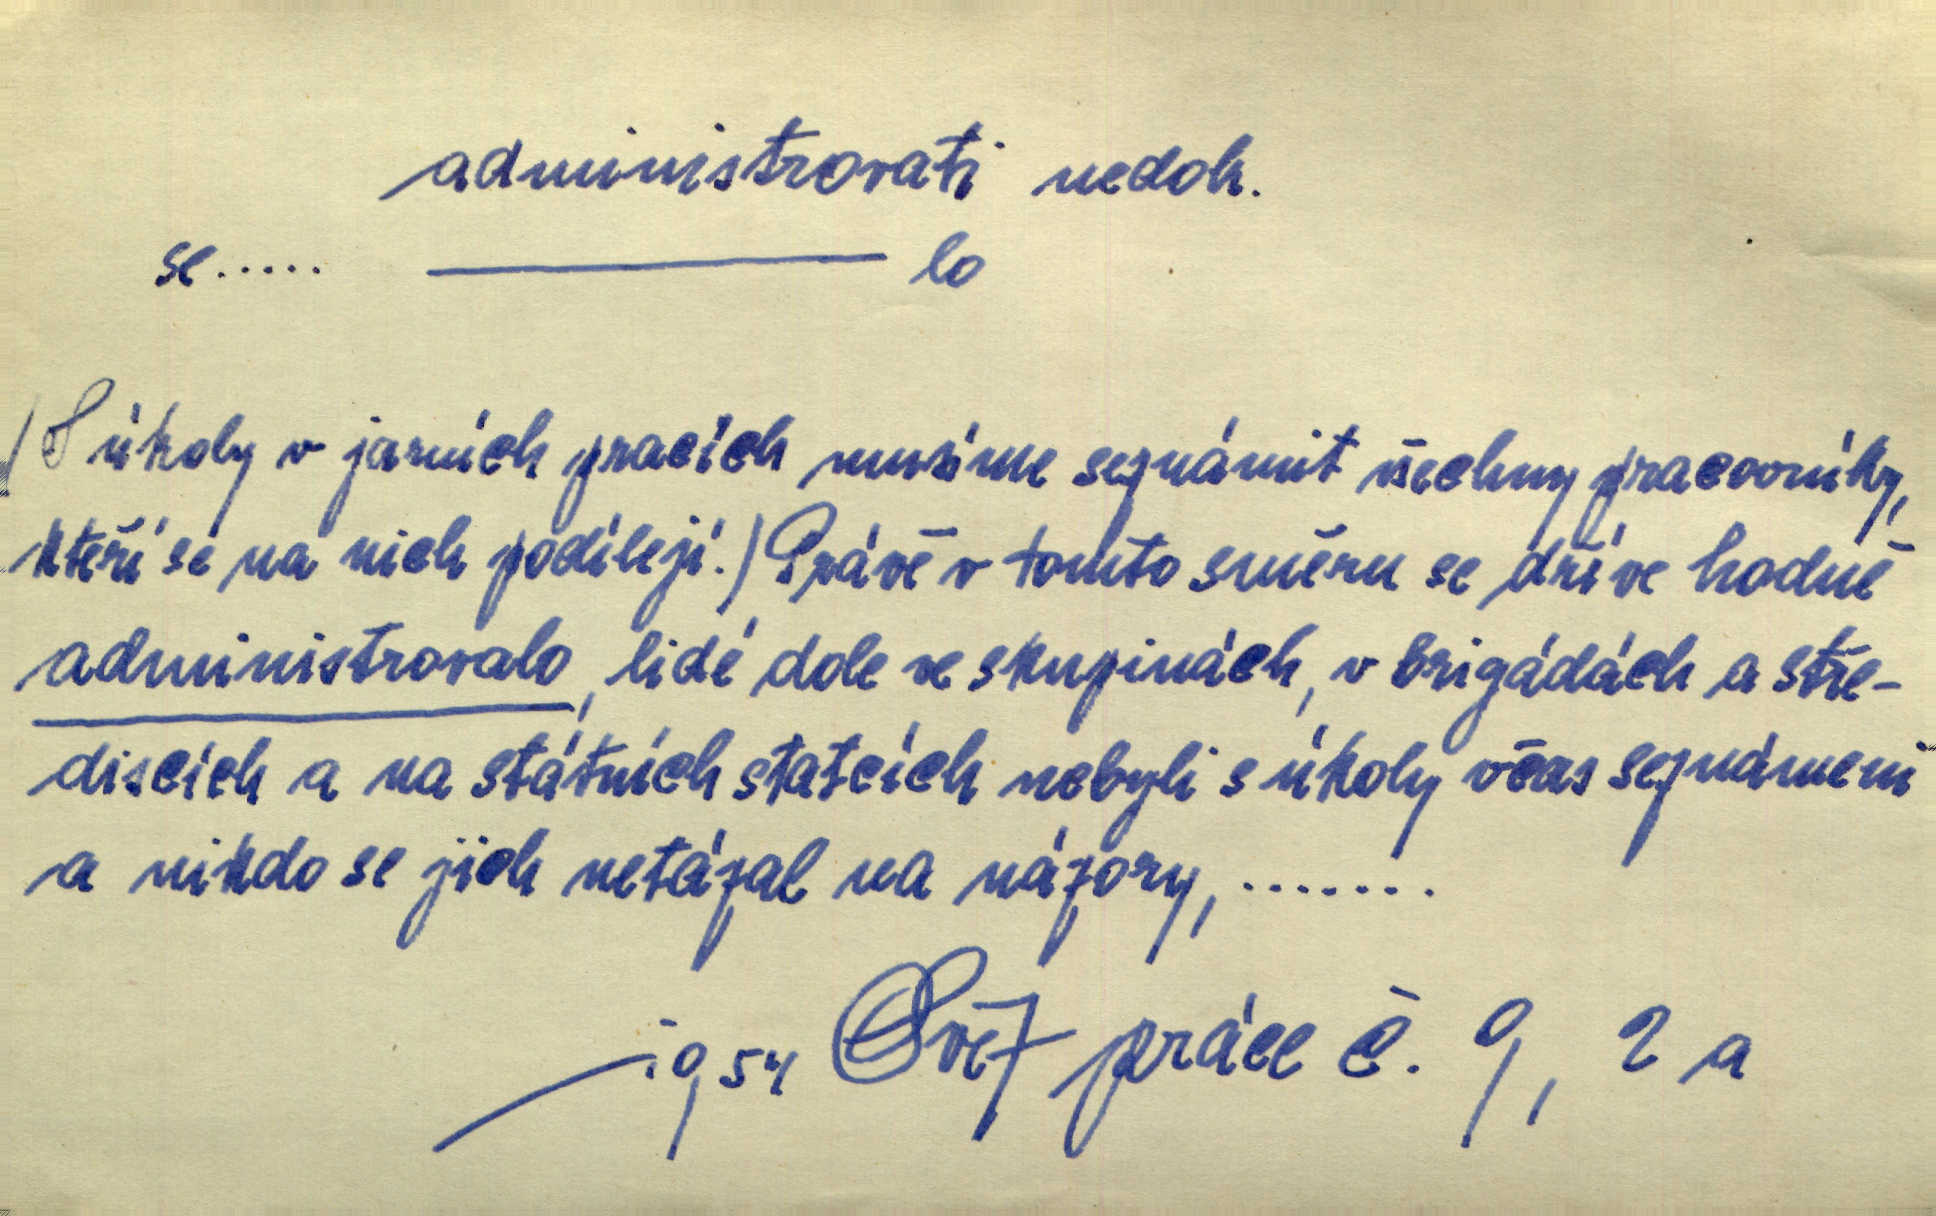 administrovati nedok.
se..... ——— lo
/S úkoly v jarních pracích musíme seznámit všechny pracovníky,
kteří se na nich podílejí./ Právě v tomto směru se dříve hodně
administrovalo, lidé dole ve skupinách, v brigádách a stře-
discích a na státních statcích nebyli s úkoly včas seznámeni
a nikdo se jich netázal na názory, .......
1954 Svět práce č. 9, 2 a